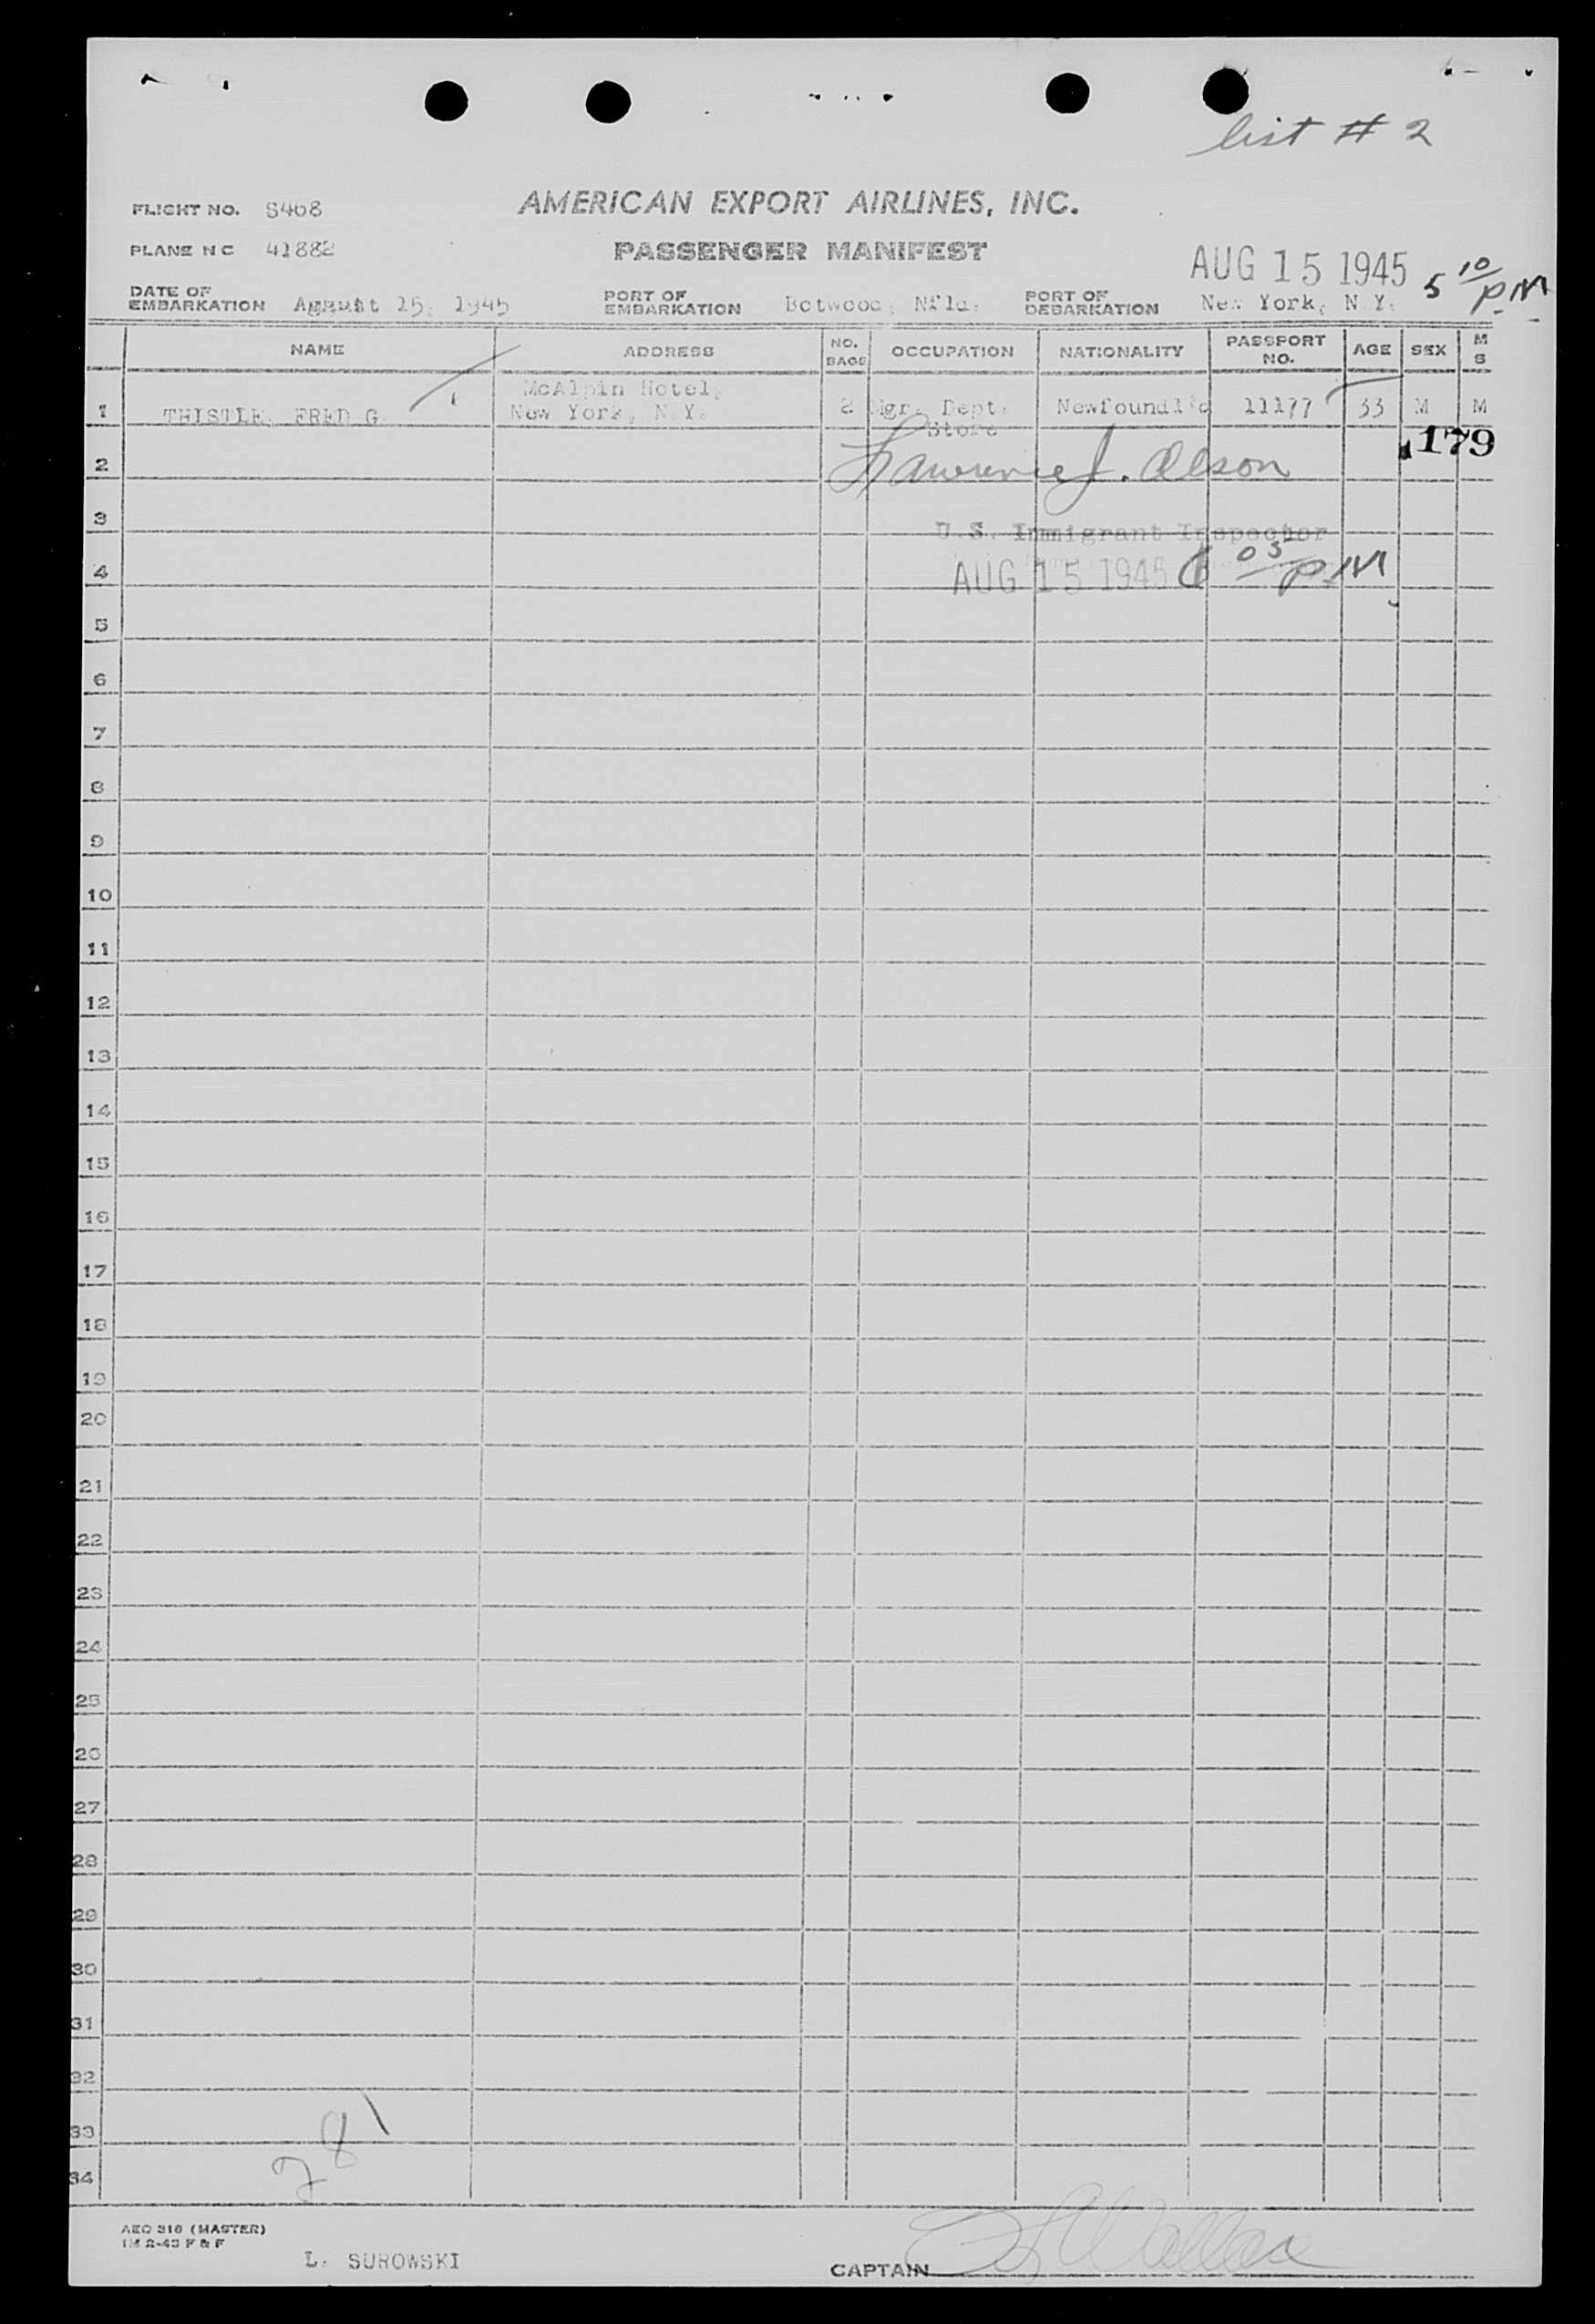 list # 2
FLIGHT NO. S468
AMERICAN EXPORT AIRLINES, INC.
PLANE NC 41882
PASSENGER MANIFEST
AUG 15 1945 5 10/PM
DATE OF EMBARKATION August 15, 1945 PORT OF EMBARKATION Botwood, Nfld. PORT OF DEBARKATION New York, N.Y.
NAME ADDRESS NO. BAGS OCCUPATION NATIONALITY PASSPORT NO. AGE SEX M S
McAlpin Hotel,
1 THISTLE, FRED G. New York, N.Y. 2 Mgr. Dept. Newfoundl'd 11177 33 M M
Store
179
2 Lawrence J. Olson
3 U.S. Immigrant Inspector
4 AUG 15 1945 6 05 P.M
5
6
7
8
9
10
11
12
13
14
15
16
17
18
19
20
21
22
23
24
25
26
27
28
29
30
31
32
33
34
AEO 318 (MASTER)
1M 2-43 F & F
L. SUROWSKI
CAPTAIN